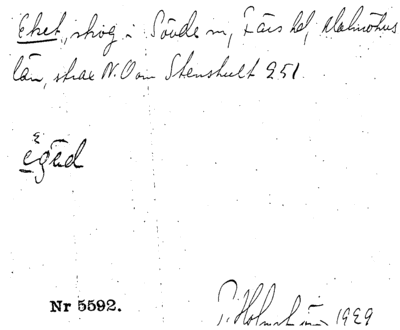 Eket, skog i Sövde sn, Färs hd, Malmöhus
län, strax N.O om Stenshult 251.
Nr 5592.
1929